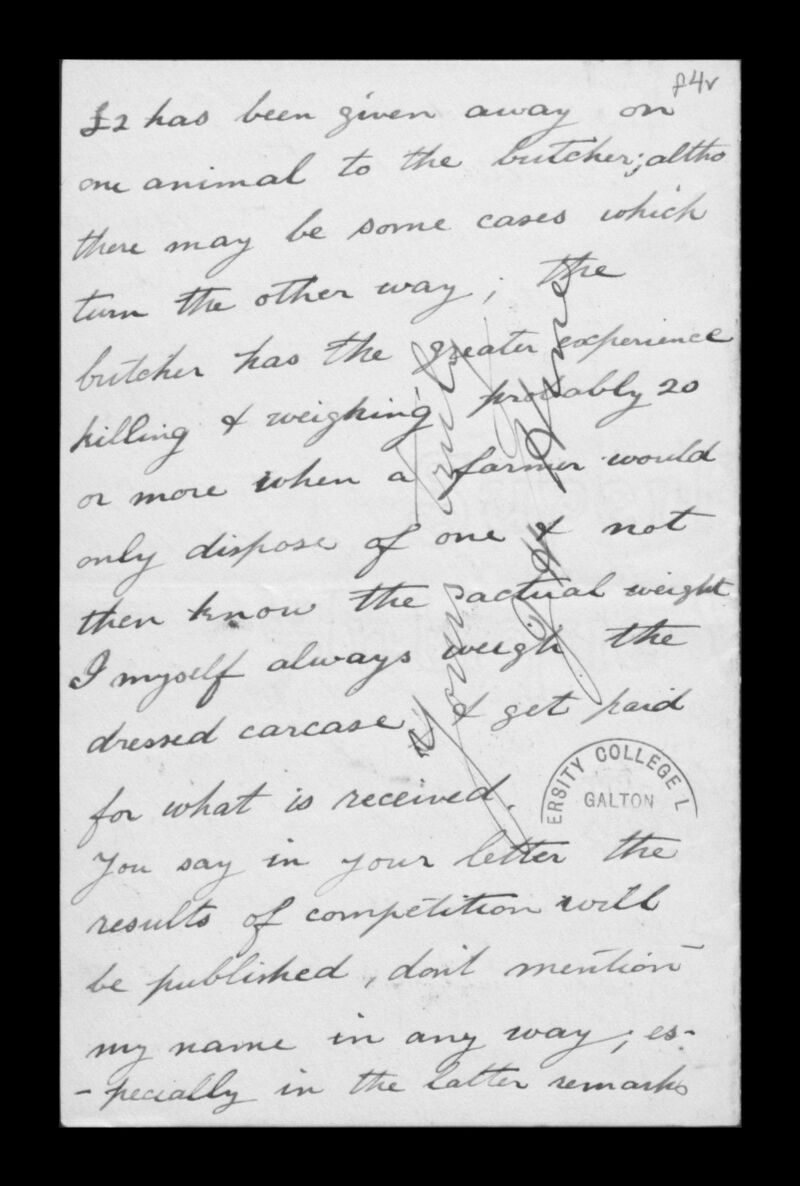 f4v
£2 has been given away on
one animal to the butcher; altho
there may be some cases which
turn the other way; the
butcher has the greater experience
killing & weighing probably 20
or more when a farmer would
only dispose of one & not
then know the actual weight
I myself always weigh the
dressed carcase, & get paid
for what is received.
You say in your letter the
results of competition will
be published, don't mention
my name in any way; es-
-pecially in the latter remarks
Yours truly
ERSITY COLLEGE L
GALTON